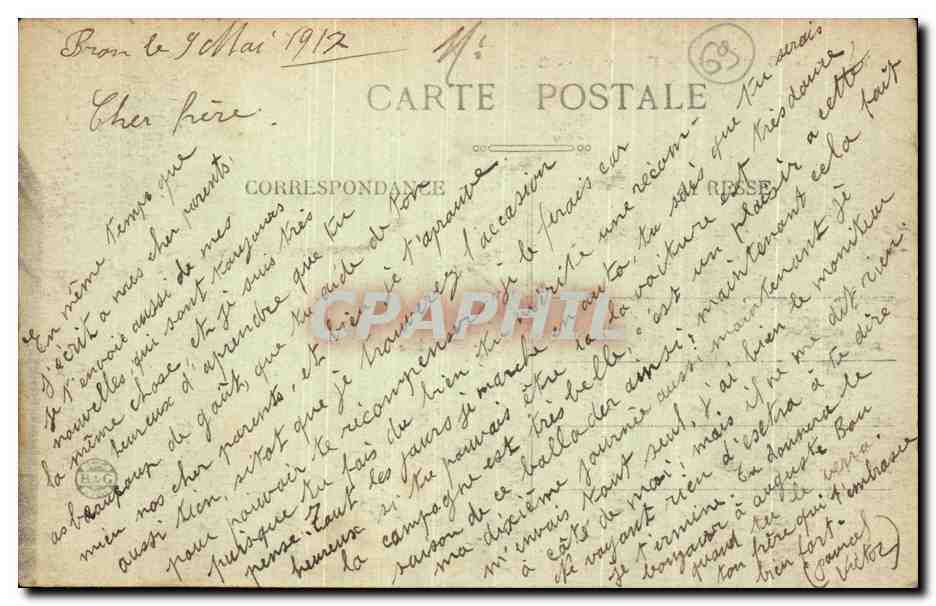 Bron le 9 Mai 1917
69
CARTE POSTALE
Cher frère.
CORRESPONDANCE
RESSE
En même temps que
j'écrit a nous cher parents,
je t'envoie aussi de mes
nouvelles, qui sont toujours
la même chose, et je suis très
heureux d'aprendre que tu
as beaucoup de goût, que tu aide de ton
mieu nos cher parents, et bien je t'aprouve
aussi bien, sitot que je trouverez l'accasion
pour pouvoir te récompensé je le ferais car
puisque tu fais du bien tu mérite une récom-
pense. Tout les jours je marche en auto, tu sais que tu serais
heureux si tu pouvais être la, la voiture est très douce,
la campagne est très belle, c'est un plaisir a cette
saison de ce ballader ainsi; maintenant cela fait
ma dixième journée aussi maintenant je
m'envais tout seul, j'ai bien le moniteur
à côté de moi, mais il ne me dit rien.
Ne voyant rien d'extra à te dire
je termine. Tu donnera le
bonjour à auguste Bon
quand tu le verra.
ton frère qui t'embrasse
bien fort.
Victor
B&G
CPAPHIL